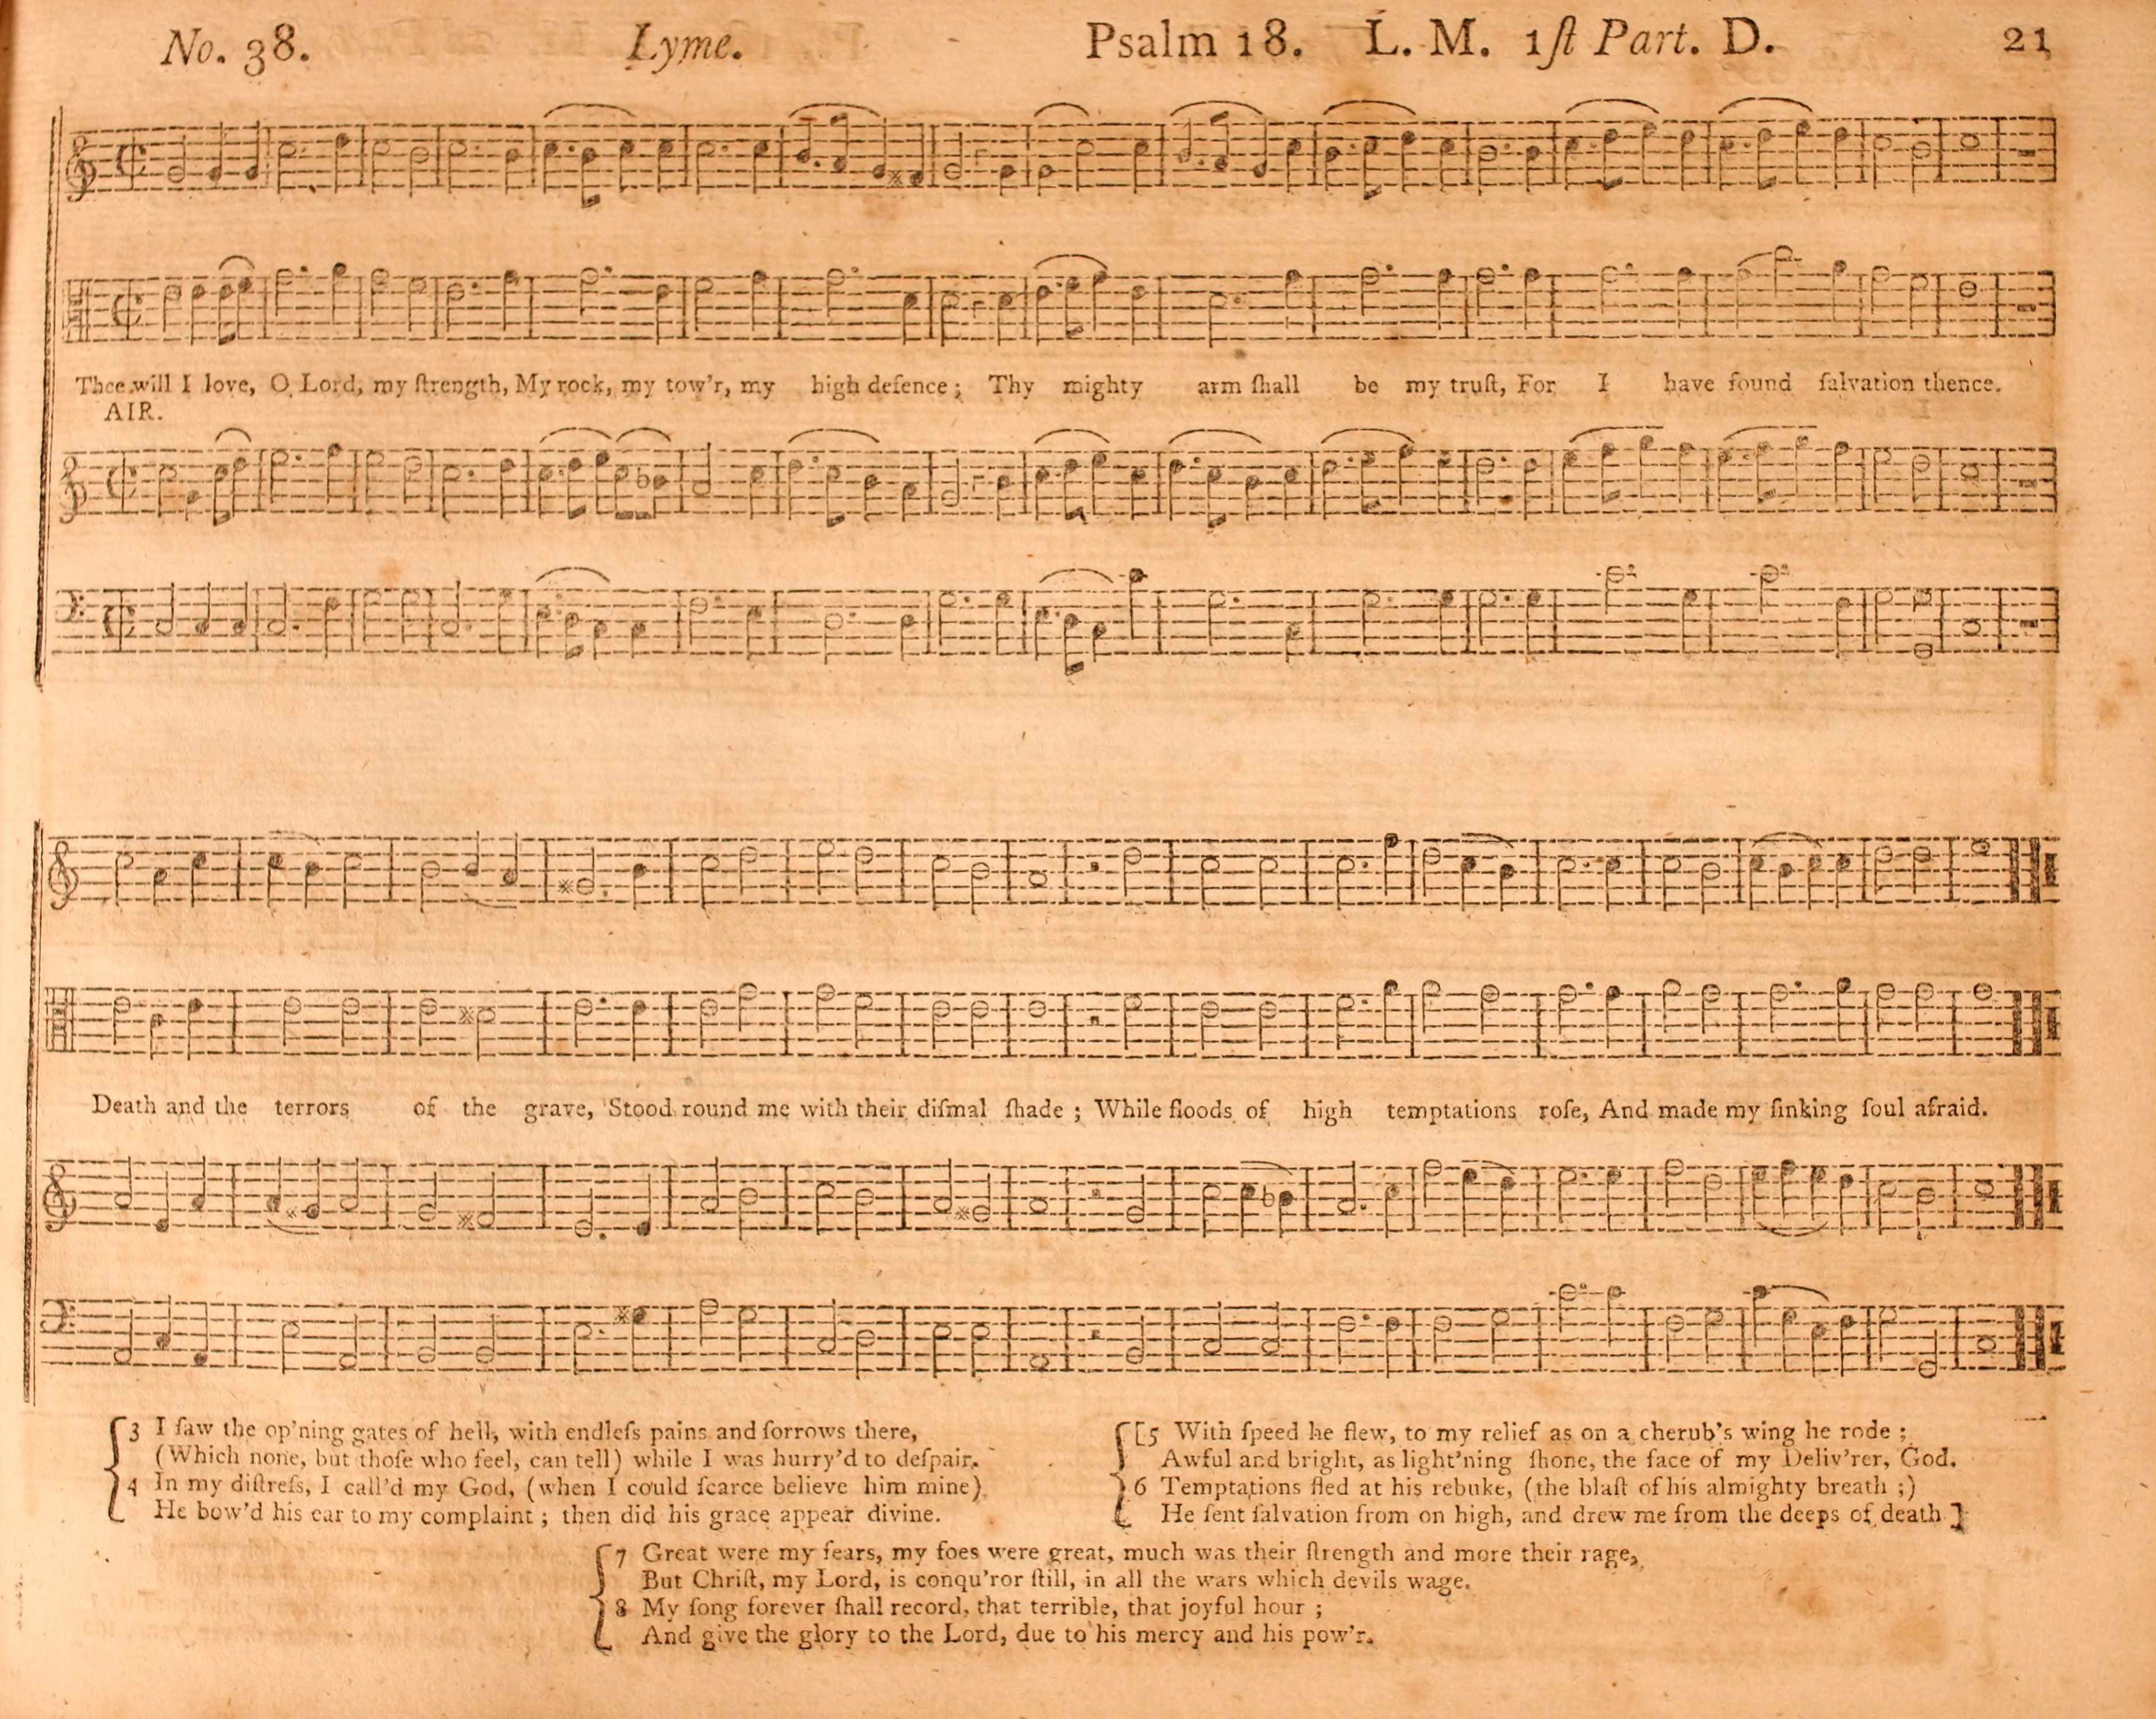 No. 38. Lyme. Psalm 18. L. M. 1ſt Part. D. 21
Thee will I love, O Lord, my ſtrength, My rock, my tow'r, my high defence; Thy mighty arm ſhall be my truſt, For I have found ſalvation thence.
AIR.
Death and the terrors of the grave, Stood round me with their diſmal ſhade; While floods of high temptations roſe, And made my ſinking ſoul afraid.
3 I ſaw the op'ning gates of hell, with endleſs pains and ſorrows there,
(Which none, but thoſe who feel, can tell) while I was hurry'd to deſpair.
4 In my diſtreſs, I call'd my God, (when I could ſcarce believe him mine)
He bow'd his ear to my complaint; then did his grace appear divine.
[5 With ſpeed he flew, to my relief as on a cherub's wing he rode;
Awful and bright, as light'ning ſhone, the face of my Deliv'rer, God.
6 Temptations fled at his rebuke, (the blaſt of his almighty breath;)
He ſent ſalvation from on high, and drew me from the deeps of death]
7 Great were my fears, my foes were great, much was their ſtrength and more their rage,
But Chriſt, my Lord, is conqu'ror ſtill, in all the wars which devils wage.
8 My ſong forever ſhall record, that terrible, that joyful hour;
And give the glory to the Lord, due to his mercy and his pow'r.